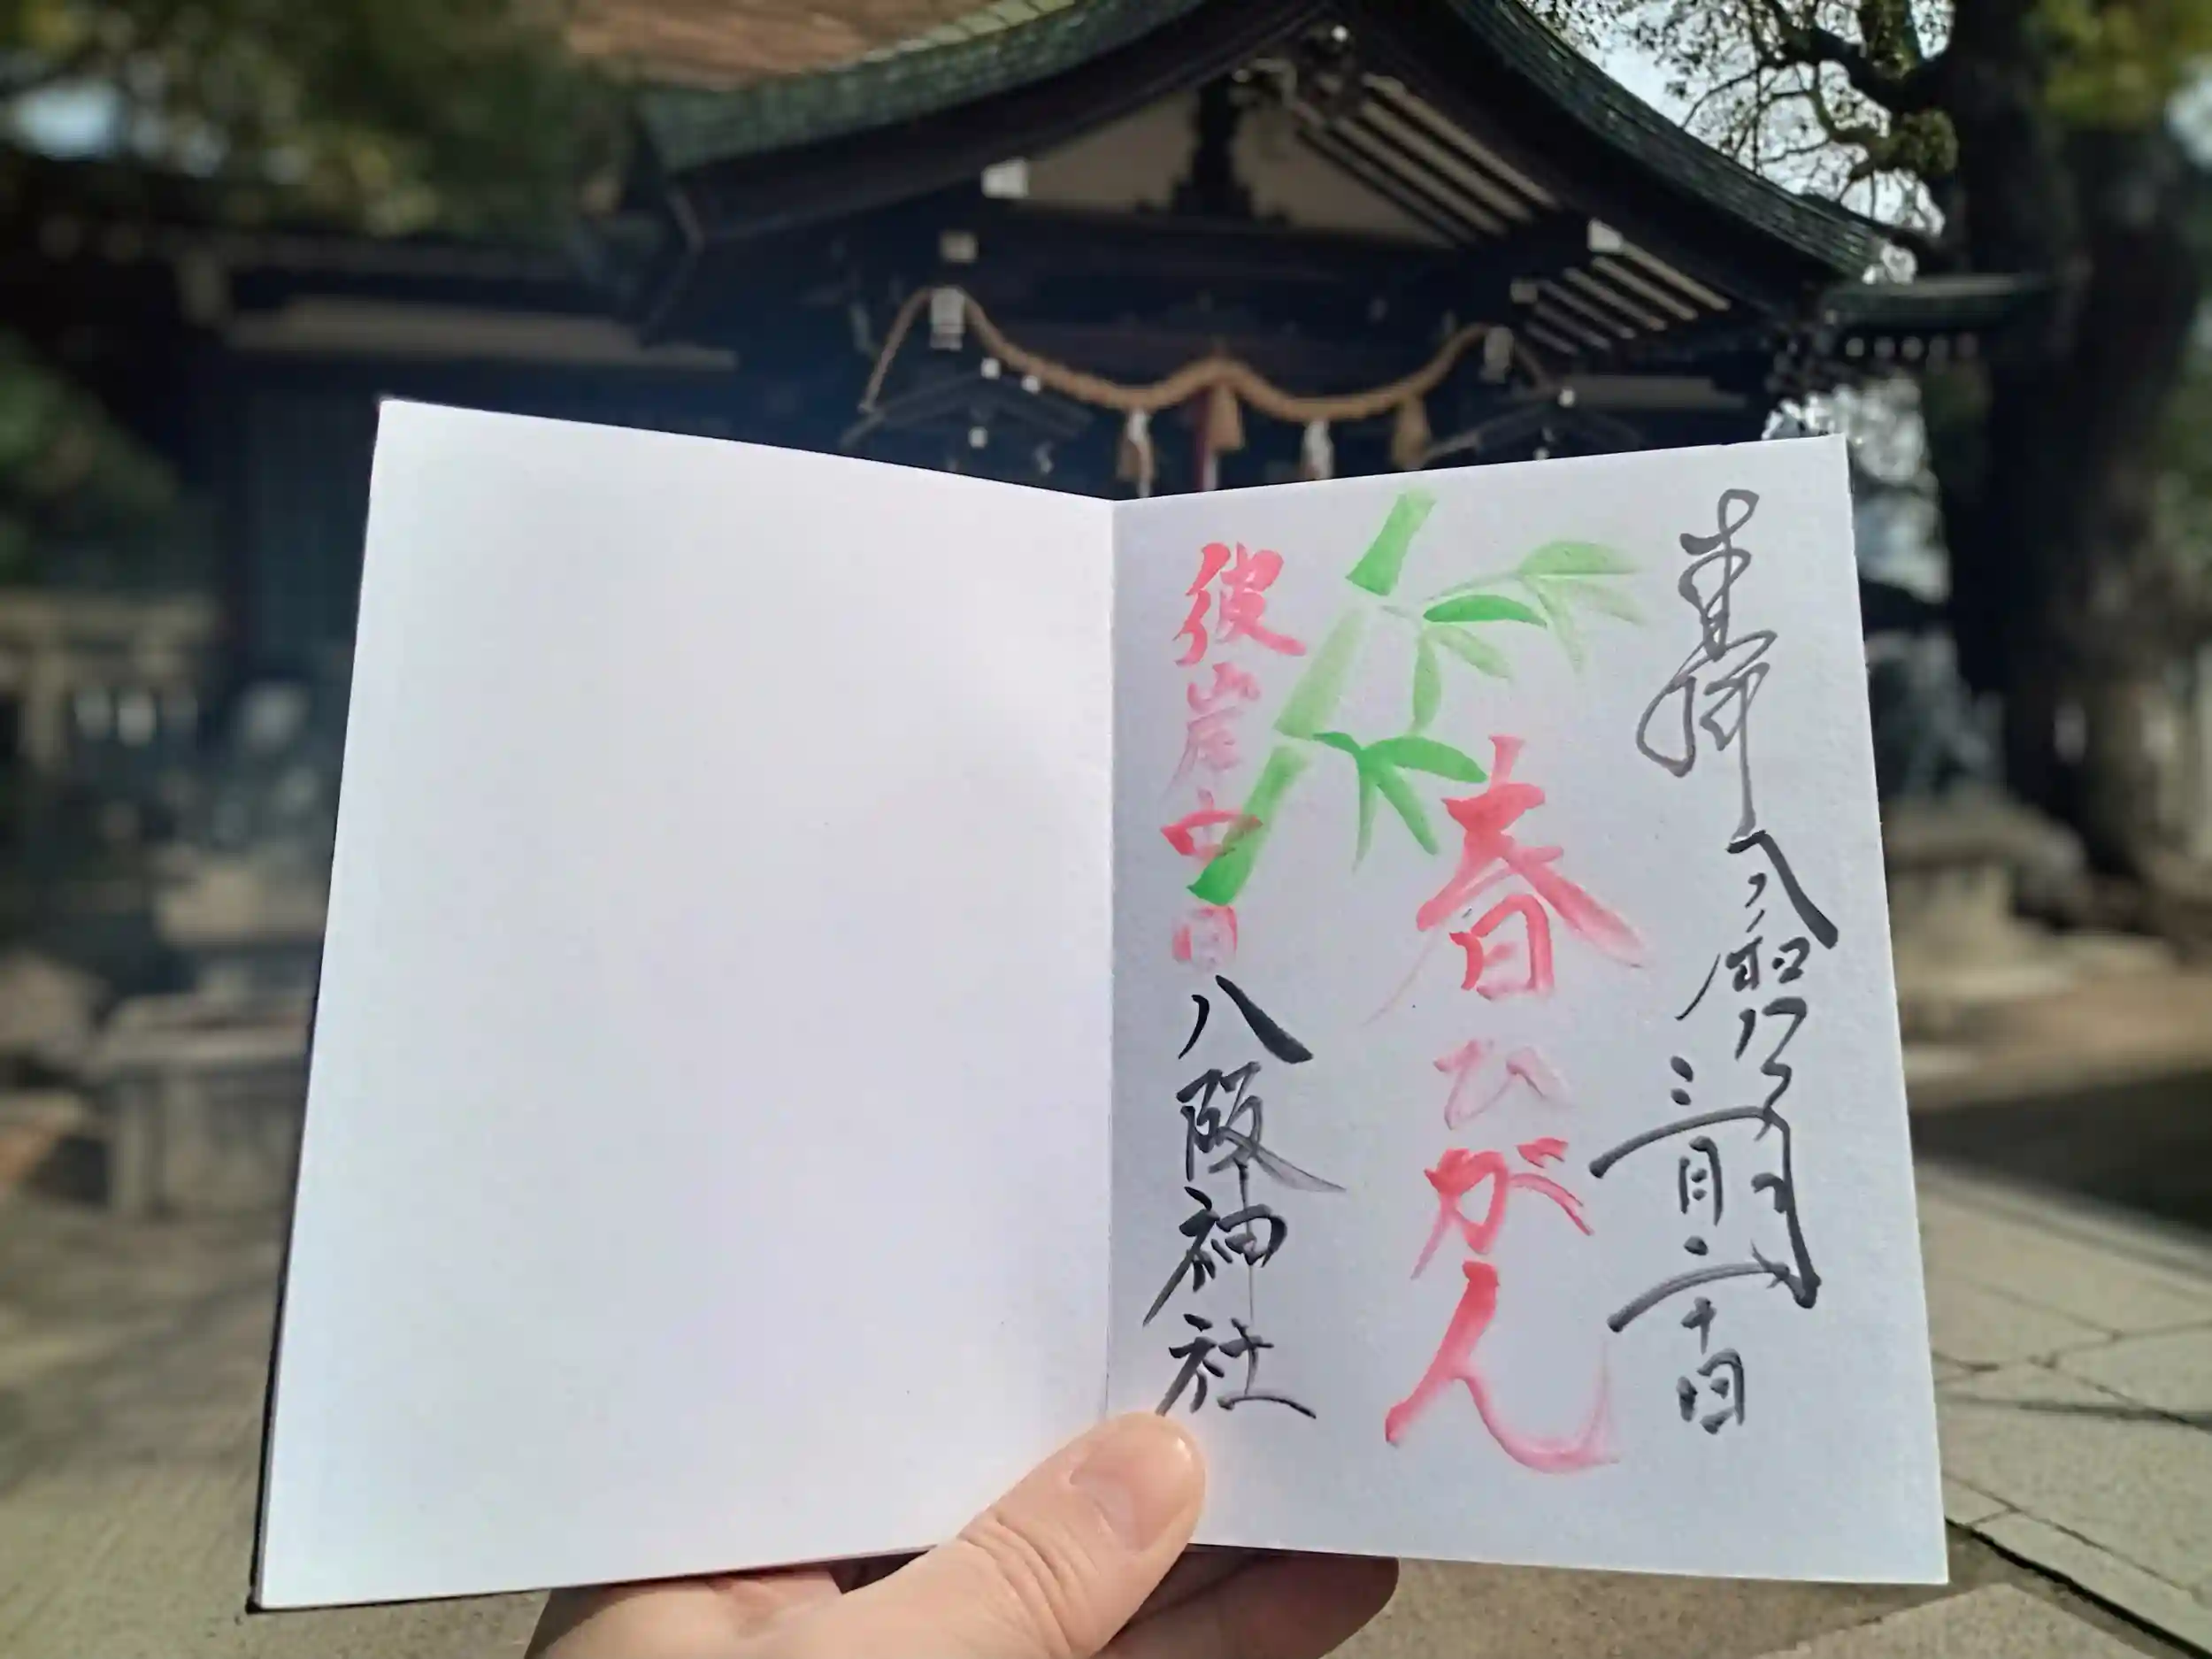 奉拝 令和八年三月二十日
春ひがん
彼岸中日
八阪神社